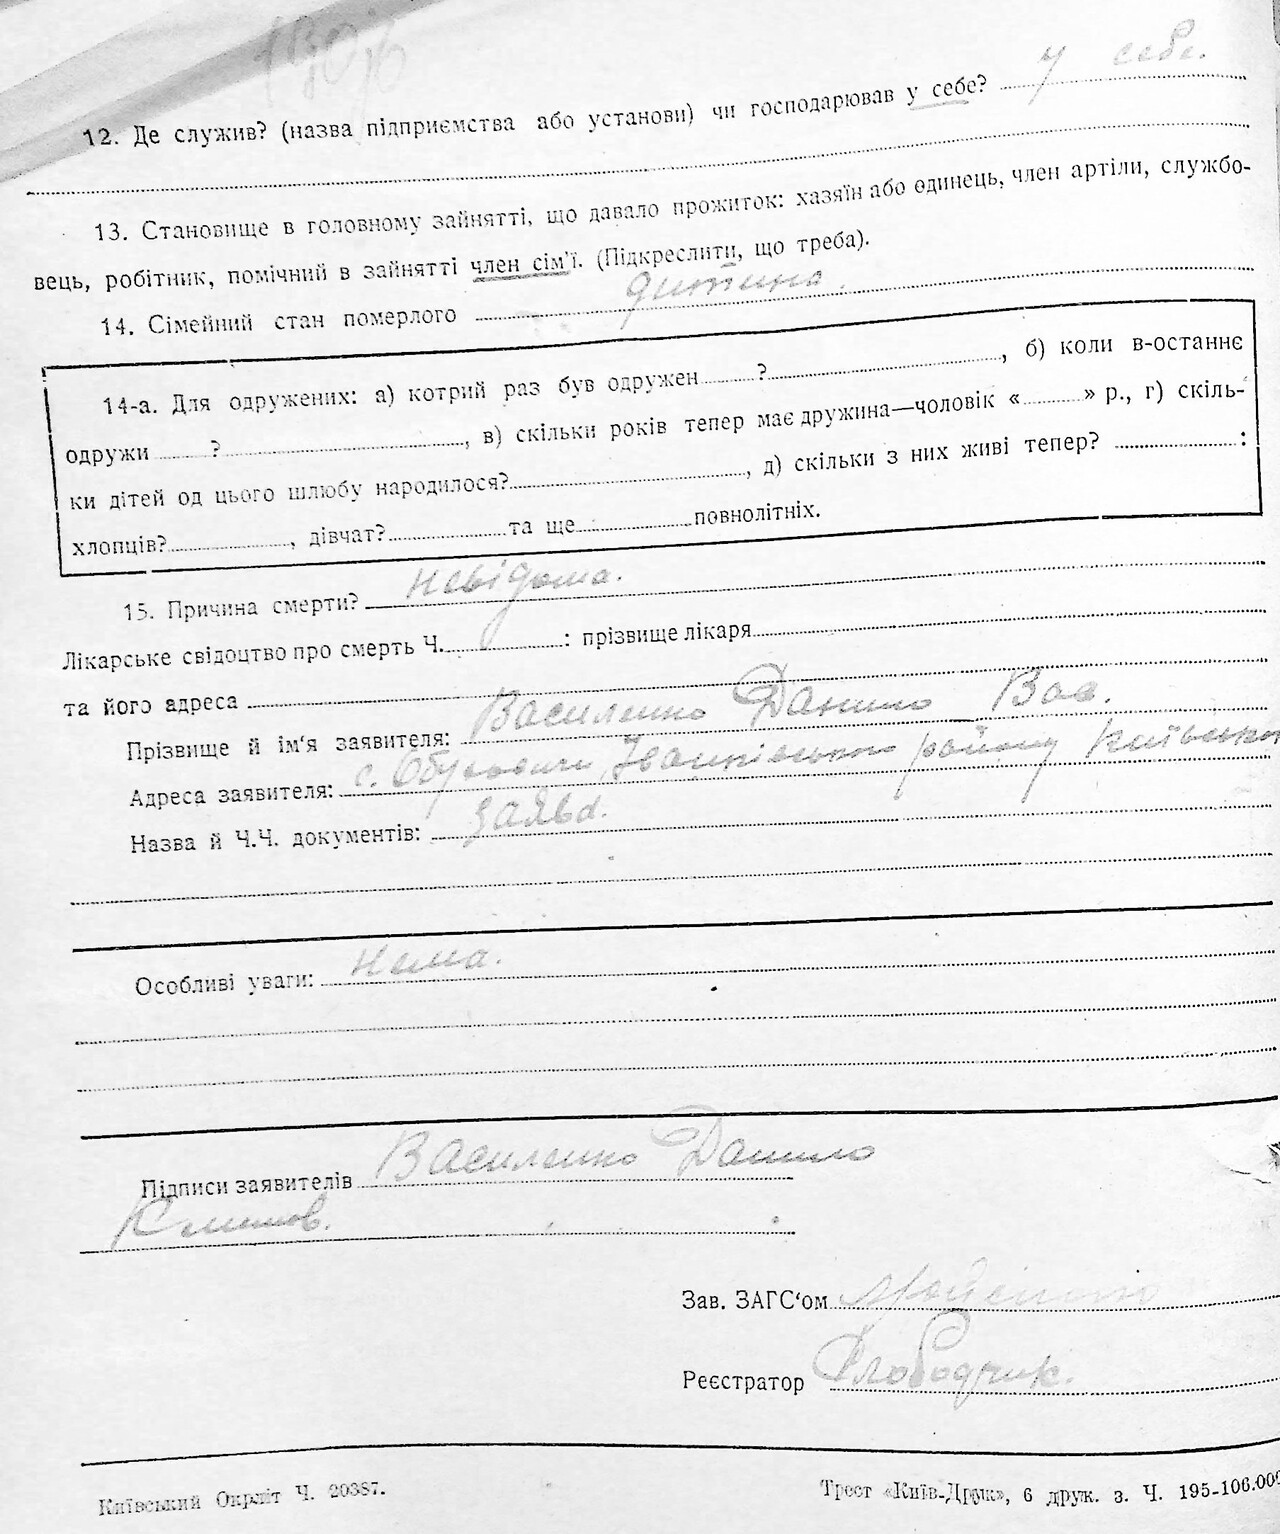 у себе.
12. Де служив? (назва підприємства або установи) чи господарював у себе?
13. Становище в головному зайнятті, що давало прожиток: хазяїн або одинець, член артіли, службо-
вець, робітник, помічний в зайнятті член сім'ї. (Підкреслити, що треба).
14. Сімейний стан померлого дитина.
14-а. Для одружених: а) котрий раз був одружен ? , б) коли в-останнє
одружи ? , в) скільки років тепер має дружина—чоловік « » р., г) скіль-
ки дітей од цього шлюбу народилося? , д) скільки з них живі тепер? :
хлопців? , дівчат? та ще повнолітніх.
15. Причина смерти? невідома.
Лікарське свідоцтво про смерть Ч. : прізвище лікаря
та його адреса
Прізвище й ім'я заявителя: Василенко Данило Вас.
Адреса заявителя: с. Обуховичи Іванківського району Київської
Назва й Ч.Ч. документів: заява.
Особливі уваги: нема.
Підписи заявителів Василенко Данило
Зав. ЗАГС'ом
Реєстратор Слободчик.
Київський Окрліт Ч. 20387.
Трест «Київ-Друк», 6 друк. з. Ч. 195-106.000